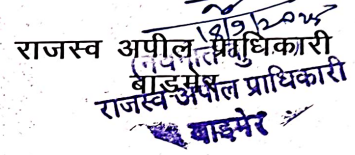 18/9/2025
राजस्व अपील प्राधिकारी
बाड़मेर
राजस्व अपील प्राधिकारी
बाड़मेर